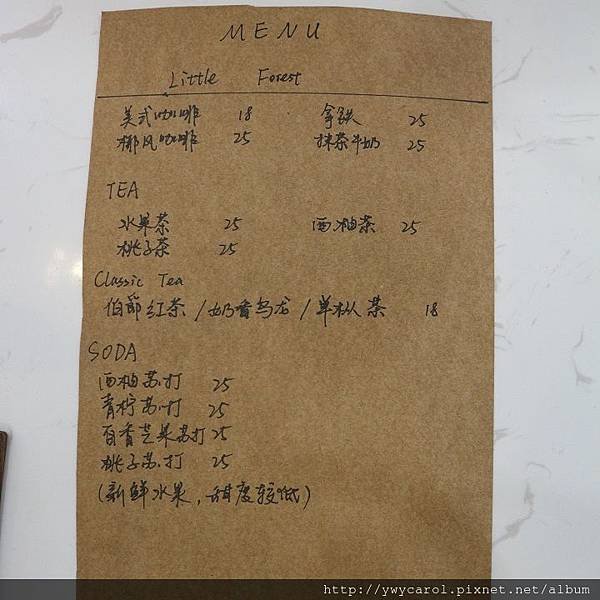 MENU
Little Forest
美式咖啡 18 拿铁 25
椰风咖啡 25 抹茶牛奶 25
TEA
水果茶 25 西柚茶 25
桃子茶 25
Classic Tea
伯爵红茶 / 奶香乌龙 / 单枞茶 18
SODA
西柚苏打 25
青柠苏打 25
百香芒果苏打 25
桃子苏打 25
(新鲜水果，甜度较低)
http://ywycarol.pixnet.net/album